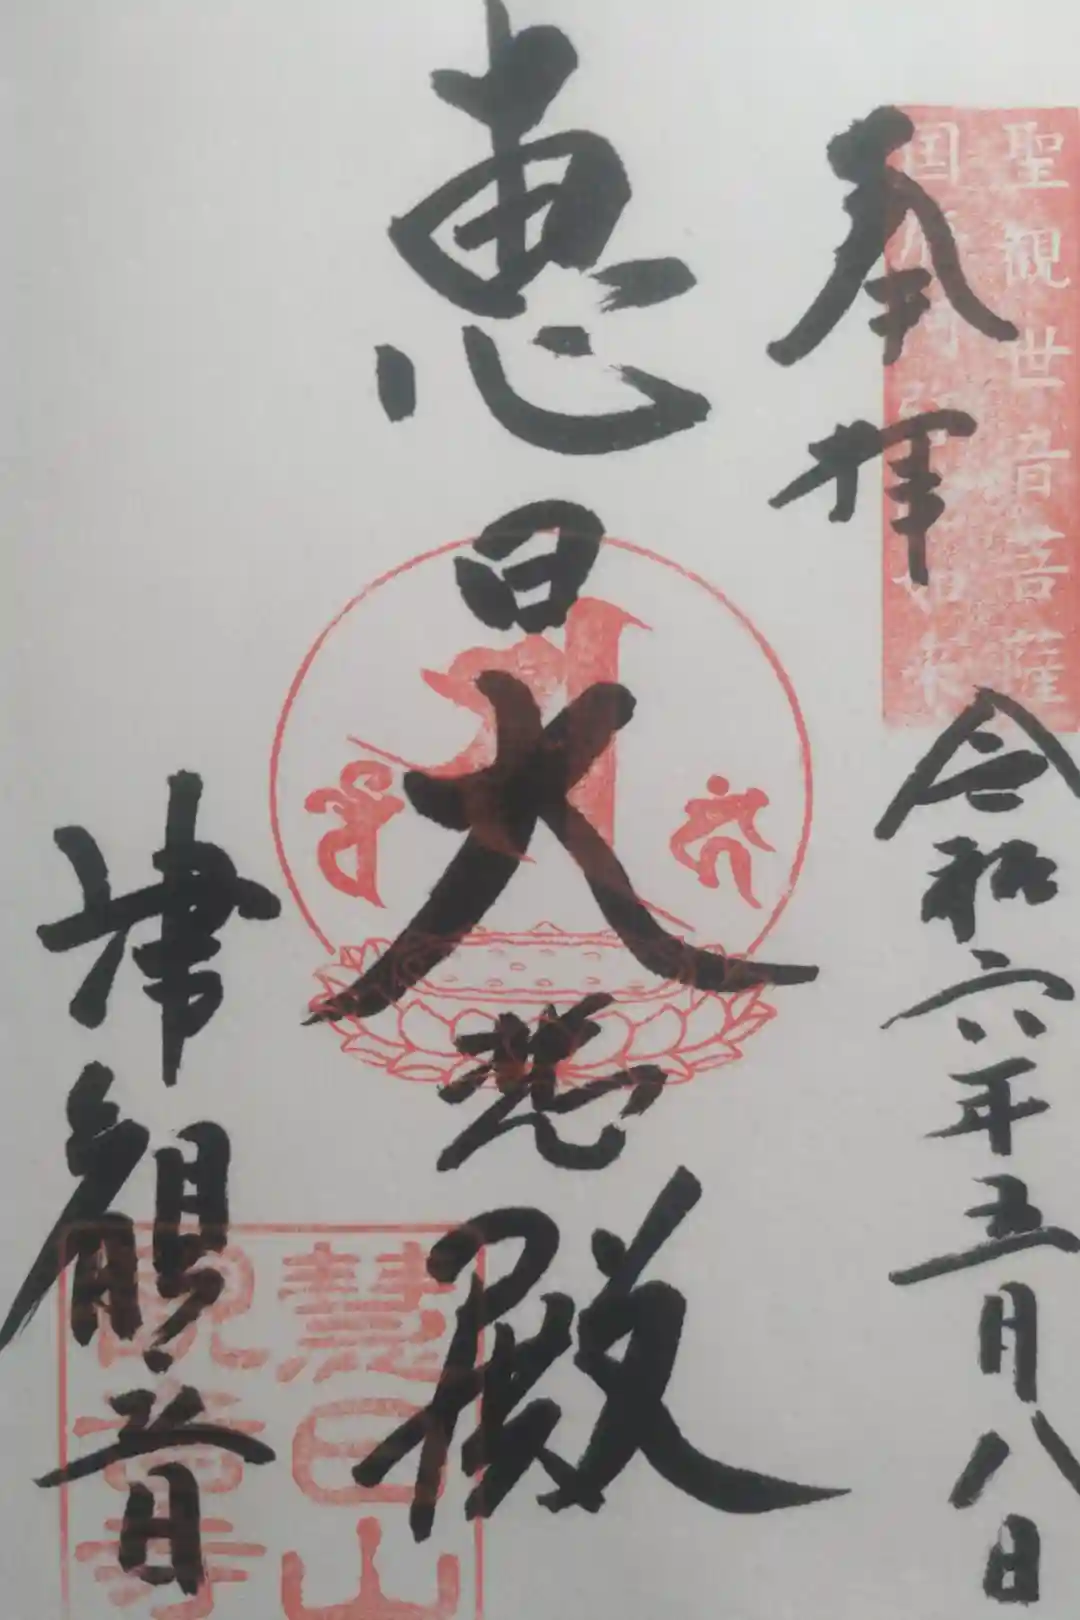 聖観世音菩薩
国府阿弥陀如来
奉拝
令和六年五月八日
恵日大光殿
津観音
慧日山
観音寺